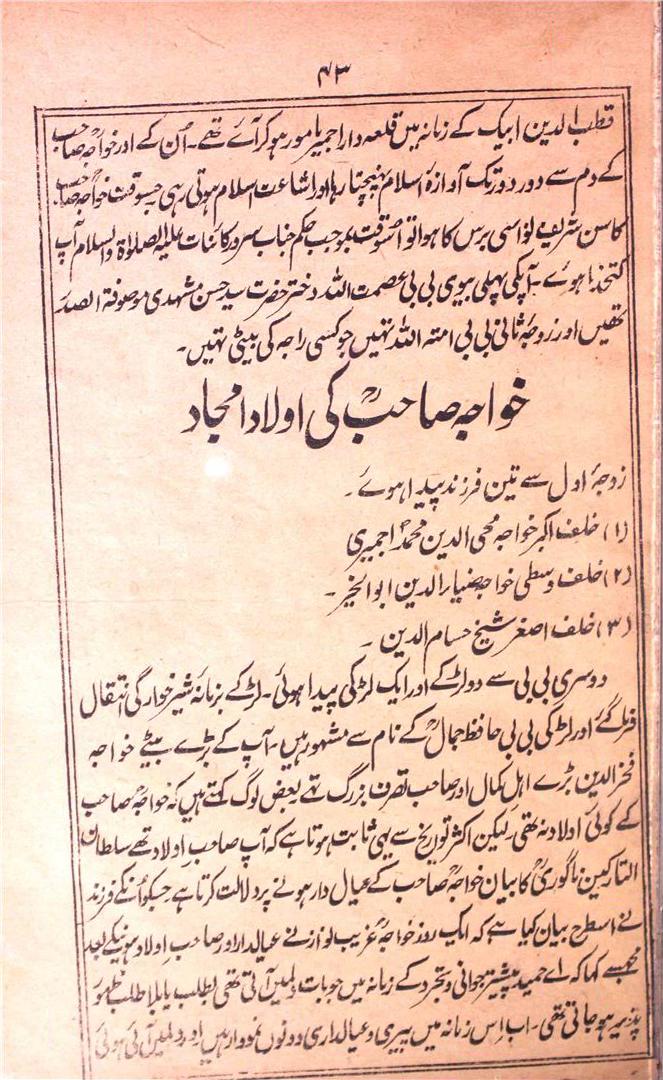 ۴۳
قطب الدین ایبک کے زمانہ میں قلعہ دار اجمیر مامور ہو کر آئے تھے۔ اُن کے اور خواجہ صاحب
کے دم سے دور دور تک آوازۂ اسلام پہنچتا رہا اور اشاعت اسلام ہوتی رہی جسوقت خواجہ صاحب
کا سن شریف نواسی برس کا ہوا تو اسوقت بموجب حکم جناب سرور کائنات علیہ الصلوٰۃ والسلام آپ
کتخدا ہوئے۔ آپکی پہلی بیوی بی بی عصمت اللہ دختر حضرت سید حسن مشہدی موصوفۃ الصدر
تھیں اور زوجۂ ثانی بی بی امتہ اللہ تہیں جو کسی راجہ کی بیٹی تہیں۔
خواجہ صاحبؒ کی اولاد امجاد
زوجۂ اول سے تین فرزند پیدا ہوئے۔
(۱) خلف اکبر خواجہ محی الدین محمد اجمیری
(۲) خلف وسطی خواجہ ضیار الدین ابو الخیر۔
(۳) خلف اصغر شیخ حسام الدین۔
دوسری بی بی سے دو لڑکے اور ایک لڑکی پیدا ہوئی۔ لڑکے بزمانۂ شیر خوارگی انتقال
فرما گئے اور لڑکی بی بی حافظ جمالؒ کے نام سے مشہور ہیں۔ آپ کے بڑے بیٹے خواجہ
فخر الدین بڑے اہل کمال اور صاحب تصرف بزرگ تھے۔ بعض لوگ کہتے ہیں کہ خواجہؒ صاحب
کے کوئی اولاد نہ تھی۔ لیکن اکثر تواریخ سے یہی ثابت ہوتا ہے کہ آپ صاحب اولاد تھے سلطان
التارکین ناگوریؒ کا بیان خواجہؒ صاحب کے عیال دار ہونے پر دلالت کرتا ہے جسکو اُنکے فرزند
نے اسطرح بیان کیا ہے کہ ایک روز خواجہؒ غریب نواز نے عیالدار اور صاحب اولاد ہونیکے بعد
مجھسے کہا کہ اے حمید پیشتر جوانی و تجرد کے زمانہ میں جو بات دلمیں آتی تھی بطلب یا بلا طلب ظہور
پذیر ہو جاتی تھی۔ اب اِس زمانہ میں پیری و عیالداری دونوں نمودار ہیں اور دلمیں آئی ہوئی